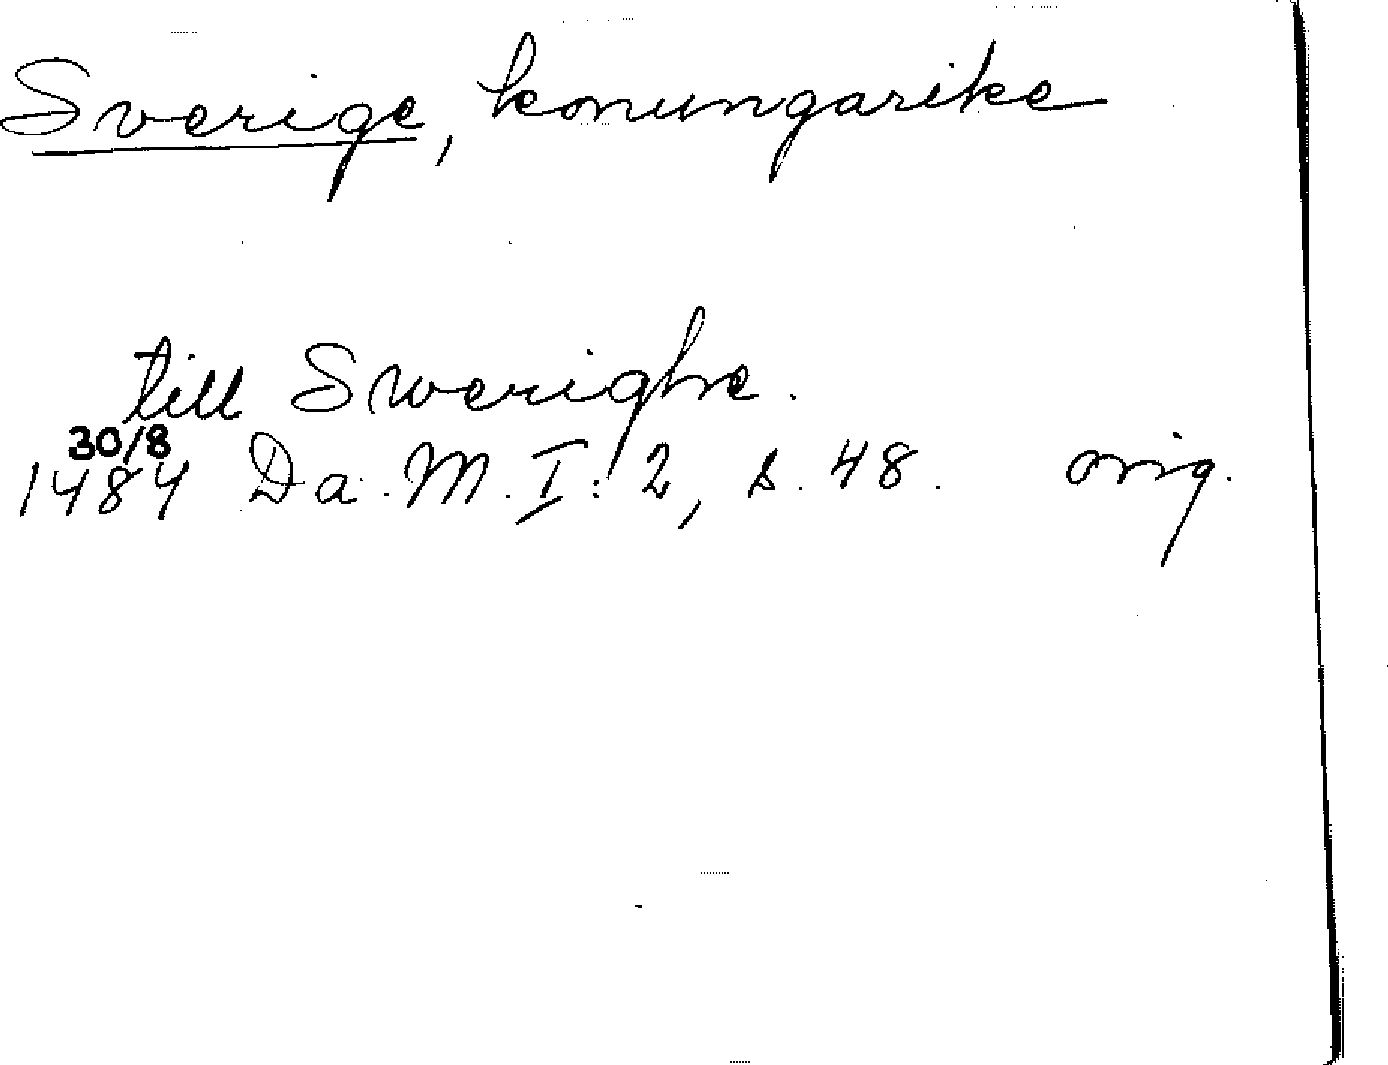 Sverige, konungarike
till Swerighe.
30/8
1484 Da. M. I: 2, s. 48. orig.